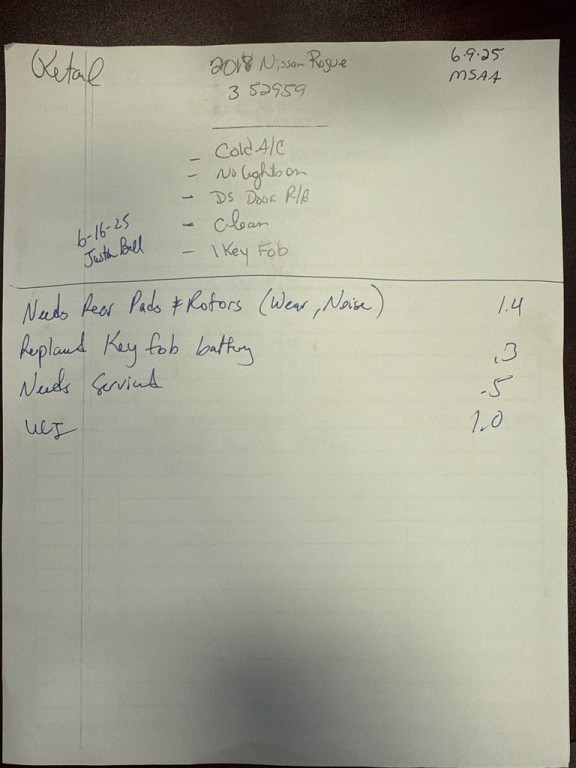 Retail
2018 Nissan Rogue
6-9-25
352959
MSAA
- Cold A/C
- No lights on
- DS Door R/B
- Clean
- 1 Key Fob
6-16-25
Justin Ball
Needs Rear Pads & Rotors (Wear, Noise) 1.4
Replaced Key fob battery .3
Needs Serviced .5
UCI 1.0